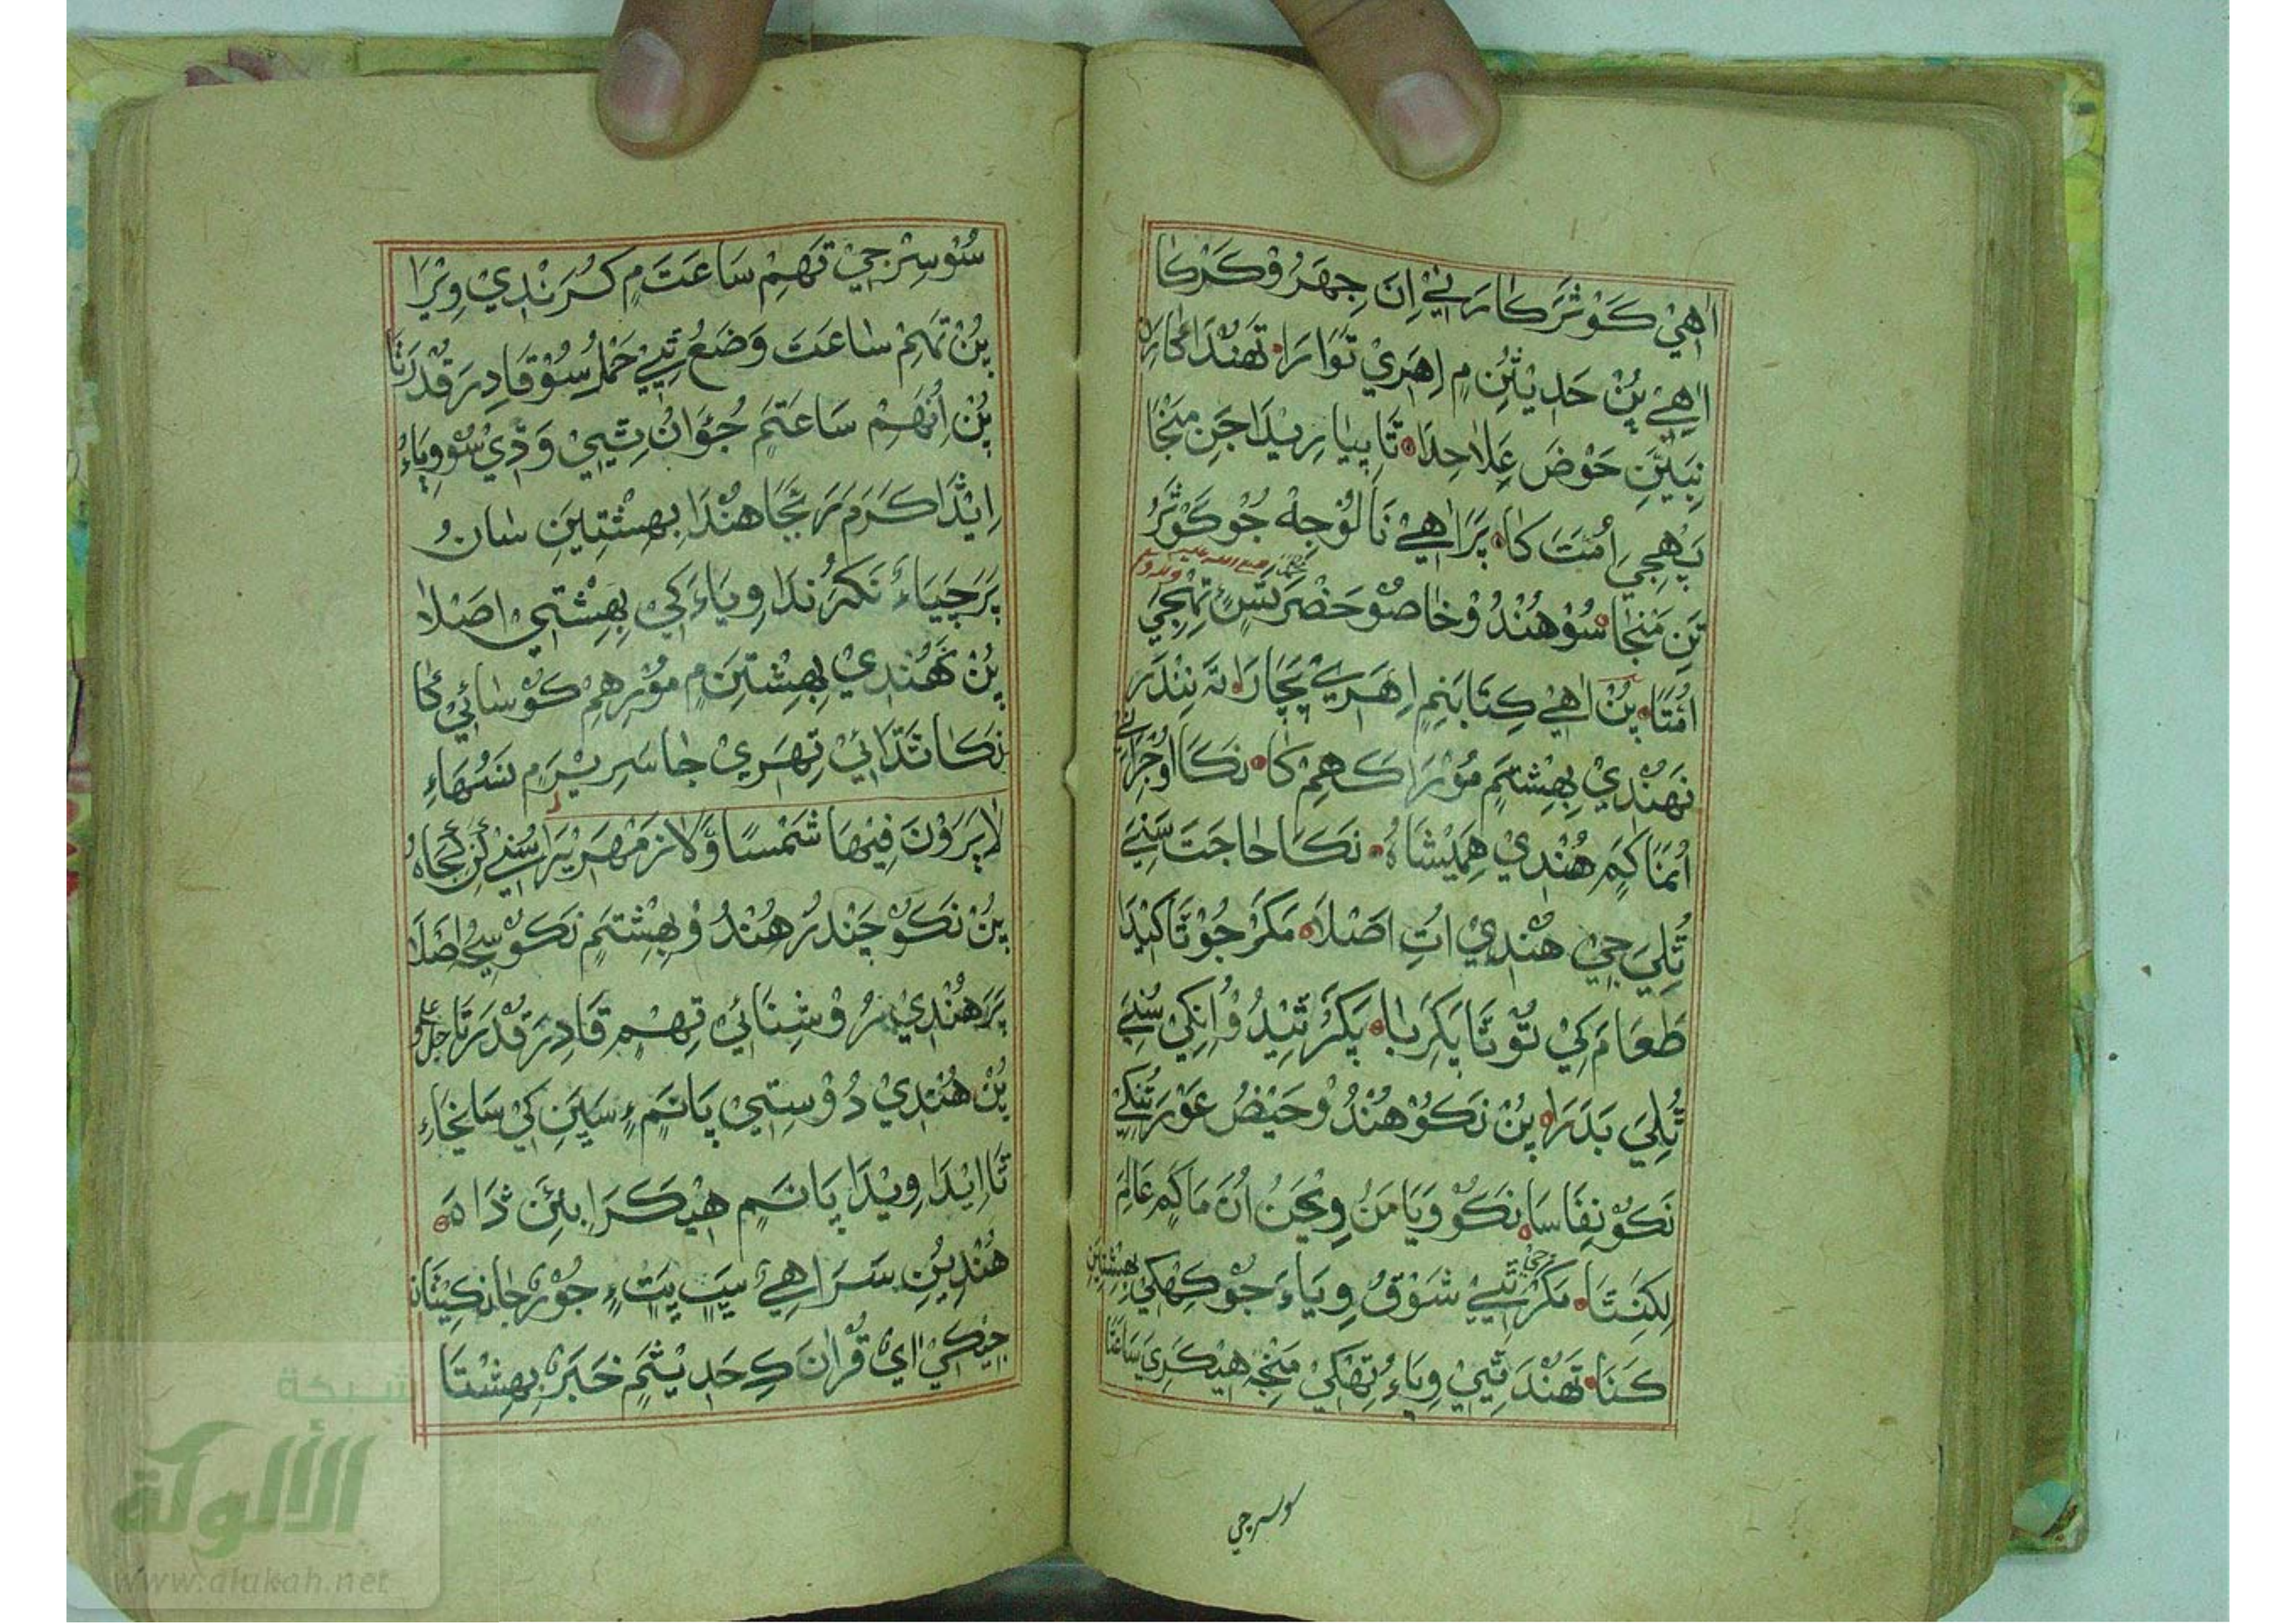 اٰهِيْ كَوْثَرَ كَارَنِيْ اِنَ جِهَرُوْ كَرْكَا
اٰهِيْ پُنْ حَدِيْثَنِ مِ اِهَرِيْ تَوَارَا تَهْنْدَا
نِبَيَنِّ حَوْضَ عَلاحِدَا تَا پِيَارِيْدَا جَنِ مَنْجَا
پَهِجِي اُمَّتَ كَا پَرَ اٰهِيْ نَالُوْ جِهْ جُوْ كَوْثَرُ
تَنِ مَنْجَا سُوْ هُنْدُوْ خَاصُوْ حَضْرَتَسٍ تِمْجِيْ
اُمَّتَا پُنْ اٰهِيْ كِتَابَنِمِ اِهَرِيْ پَچَارَا تَه نِنْدَرَ
نَهْنْدِيْ بِهِشْتَمِ مُوْرَاكَهِمْ كَا نَكَا اُوْجَرَائِيْ
اُنَمَّا كَمِ هُنْدِيْ هَمِيْشَاهُ نَكَا حَاجَتَ سَنِيَ
ثُلِيَ جِيْ هُنْدِيْ اُتِ اَصْلَا مَكَرْ جُوْ تَا كَنْيِدَا
طَعَامَ كِيْ تُوْ تَا پَكَرَ بَا پَكَرْ تِنْيدُوْ اُنْكِيْ سُنِيَ
ثُلِيَ بَدَرَا پُنْ نَكُوْ هُنْدُوْ حَيْضُ عَوْرَتُنْكِيْ
نَكُوْ نِفَاسَا نَكُوْ وَيَامَنُ وِيَجَنُ اُنَ مَا كَمِ عَالِمَ
لِكَنِتَا مَكَرْ جِيْ تِيِيْ شَوْقُ وِيَاءِ جُوْ كِهْكِيْ بِهِشْتِيَنِ
كَنَا تَهْنْدَ تِيِيْ وِيَاءُ تِهْكِيْ مَنْجِهْ هِيْكَرِيْ سَاعَتَا
سوسرجي
سُوْ سِرْجِيْ تَهِمْ سَاعَتَ مِ كُرَنْدِيْ وِيْرَا
پُنْ تَهِمْ سَاعَتَ وَضَعُ تِيِيْ حَمْلُ سُوْ قَادِرَ قُدْرَتَا
پُنْ اُنَهِمْ سَاعَتَمِ جُوَانُ تِيِيْ وَڎِيْ سُوْ وِيَاءُ
اِيْڎَا كَرَمَ رَبَّجَا هُنْدَا بِهِشْتِيَنِ سَانُ
پَرَ جَيَاءُ نَكَرُنْدَا وِيَاءَ كِيْ بِهِشْتِيْ اَصْلَا
پُنْ نَهُنْدِيْ بِهِشْتَنِ مِ مُوْرِهِمْ كُوْسَائِيْ كَا
نَكَا تَڎَائِيْ تِهَرِيْ جَا سَرِيْرَمِ سَنْهَاءِ
لَا يَرَوْنَ فِيْهَا شَمْسًا وَّلَا زَمْهَرِيْرًا سُنِيْ كَنِ كُجَاهُ
پُنْ نَكُوْ چَنْدُرُ هُنْدُوْ بِهِشْتَمِ نَكُوْ سِجُ اَصْلَا
پَرَ هُنْدِيْ رُوْشِنَائِيْ تِهِمْ قَادِرَ قُدْرَتَا جل علو
پُنْ هُنْدِيْ دُوْسِتِيْ پَانَمِ سَپَنِ كِيْ سَانِجَاءِ
تَا اِيْدَا وِيْدَا پَانَمِ هِيْكَرَا ٻِئَنِ ڎَاهَ
هُنْدِيُنِ سَرَاهِيْ سَپَ پَتِ جُوْرِجَا نَكِيْثَا
جِيْكِيْ اٰيْ قُرْاٰنَ كِ حَدِيْثَمِ خَبَرَ بِهِشْتَا
شبكة
الألوكة
www.alukah.net